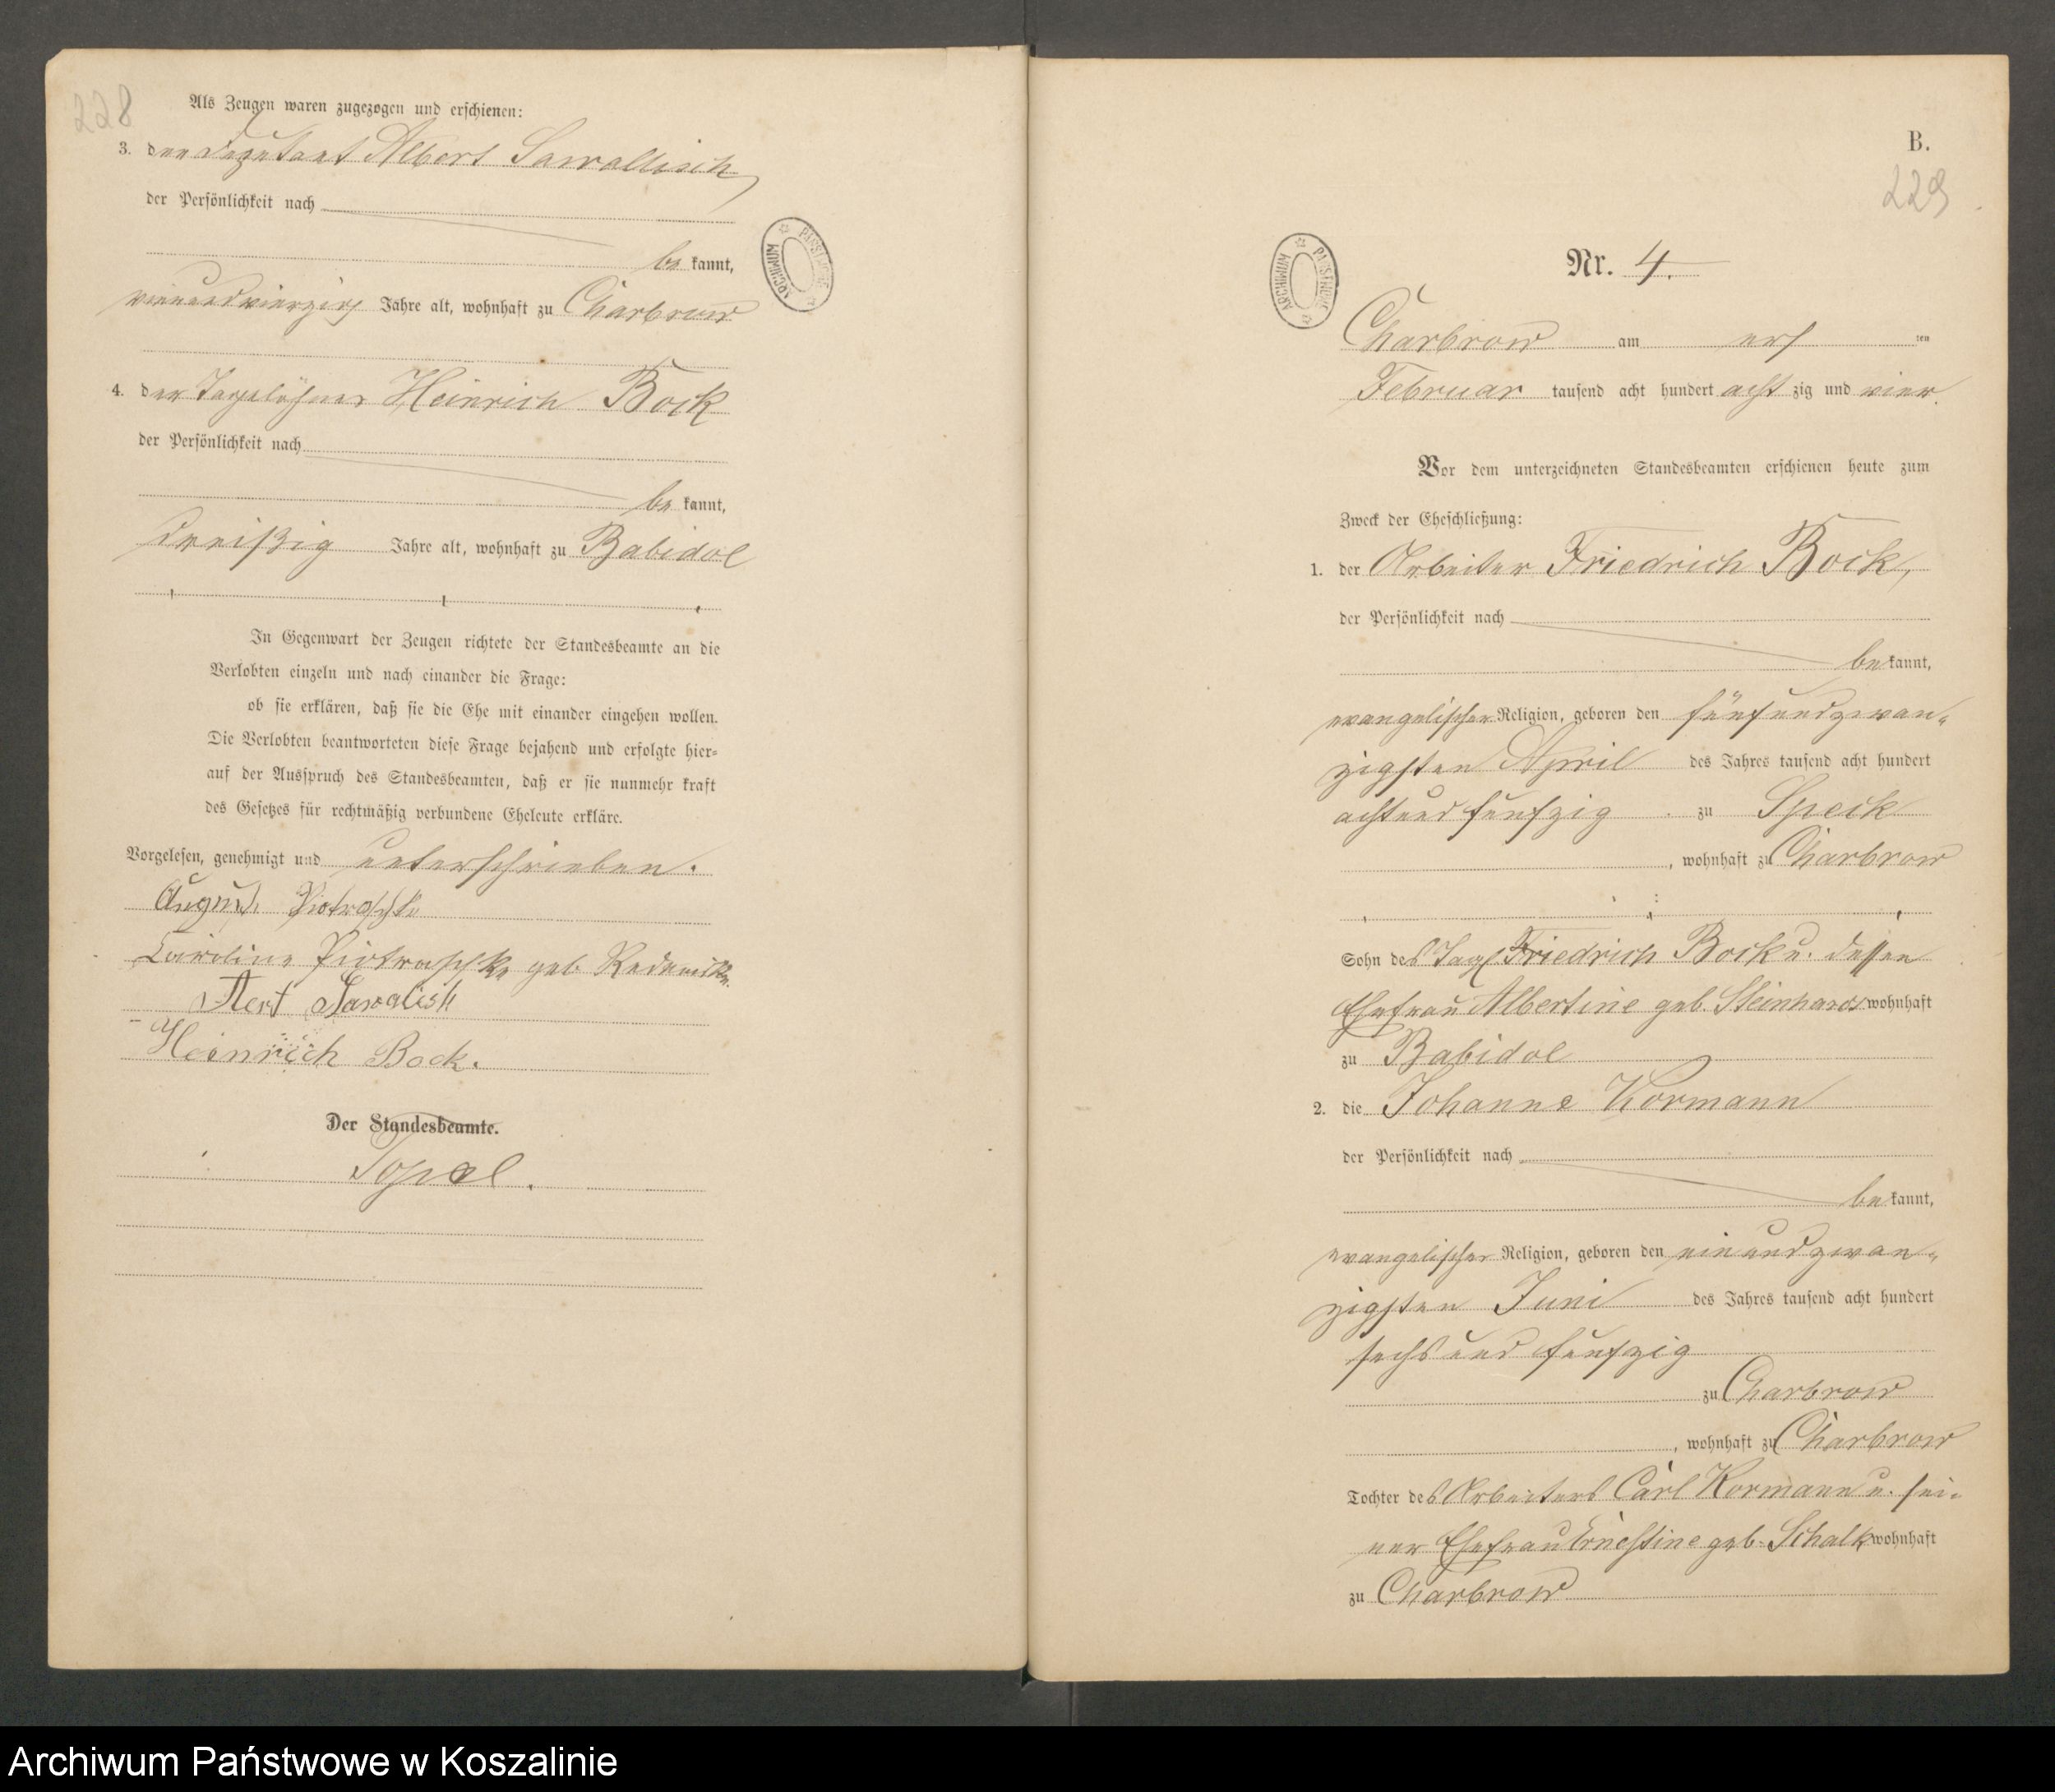 228
Als Zeugen waren zugezogen und erschienen:
3. der Deputant Albert Sawallisch
der Persönlichkeit nach
be kannt,
vierundvierzig Jahre alt, wohnhaft zu Charbrow
4. der Tagelöhner Heinrich Bock
der Persönlichkeit nach
be kannt,
dreißig Jahre alt, wohnhaft zu Babidol
In Gegenwart der Zeugen richtete der Standesbeamte an die
Verlobten einzeln und nach einander die Frage:
ob sie erklären, daß sie die Ehe mit einander eingehen wollen.
Die Verlobten beantworteten diese Frage bejahend und erfolgte hier-
auf der Ausspruch des Standesbeamten, daß er sie nunmehr kraft
des Gesetzes für rechtmäßig verbundene Eheleute erkläre.
Vorgelesen, genehmigt und unterschrieben.
August Piotraschke
Caroline Piotraschke geb.
Sawalish
Heinrich Bock.
Der Standesbeamte.
ARCHIWUM PAŃSTWOWE
B.
229
ARCHIWUM PAŃSTWOWE
Nr. 4.
Charbrow am ers ten
Februar tausend acht hundert acht zig und vier.
Vor dem unterzeichneten Standesbeamten erschienen heute zum
Zweck der Eheschließung:
1. der Arbeiter Friedrich Bock,
der Persönlichkeit nach
be kannt,
evangelischer Religion, geboren den fünfundzwan-
zigsten April des Jahres tausend acht hundert
achtund fünfzig zu Speck
, wohnhaft zu Charbrow
Sohn des Tagl. Friedrich Bock u. dessen
Ehefrau Albertine geb. Steinhardt wohnhaft
zu Babidol
2. die Johanne Kormann
der Persönlichkeit nach
be kannt,
evangelischer Religion, geboren den einundzwan-
zigsten Juni des Jahres tausend acht hundert
sechs und fünfzig
zu Charbrow
, wohnhaft zu Charbrow
Tochter des Arbeiters Carl Kormann u. sei-
ner Ehefrau Ernestine geb. Schalk wohnhaft
zu Charbrow
Archiwum Państwowe w Koszalinie